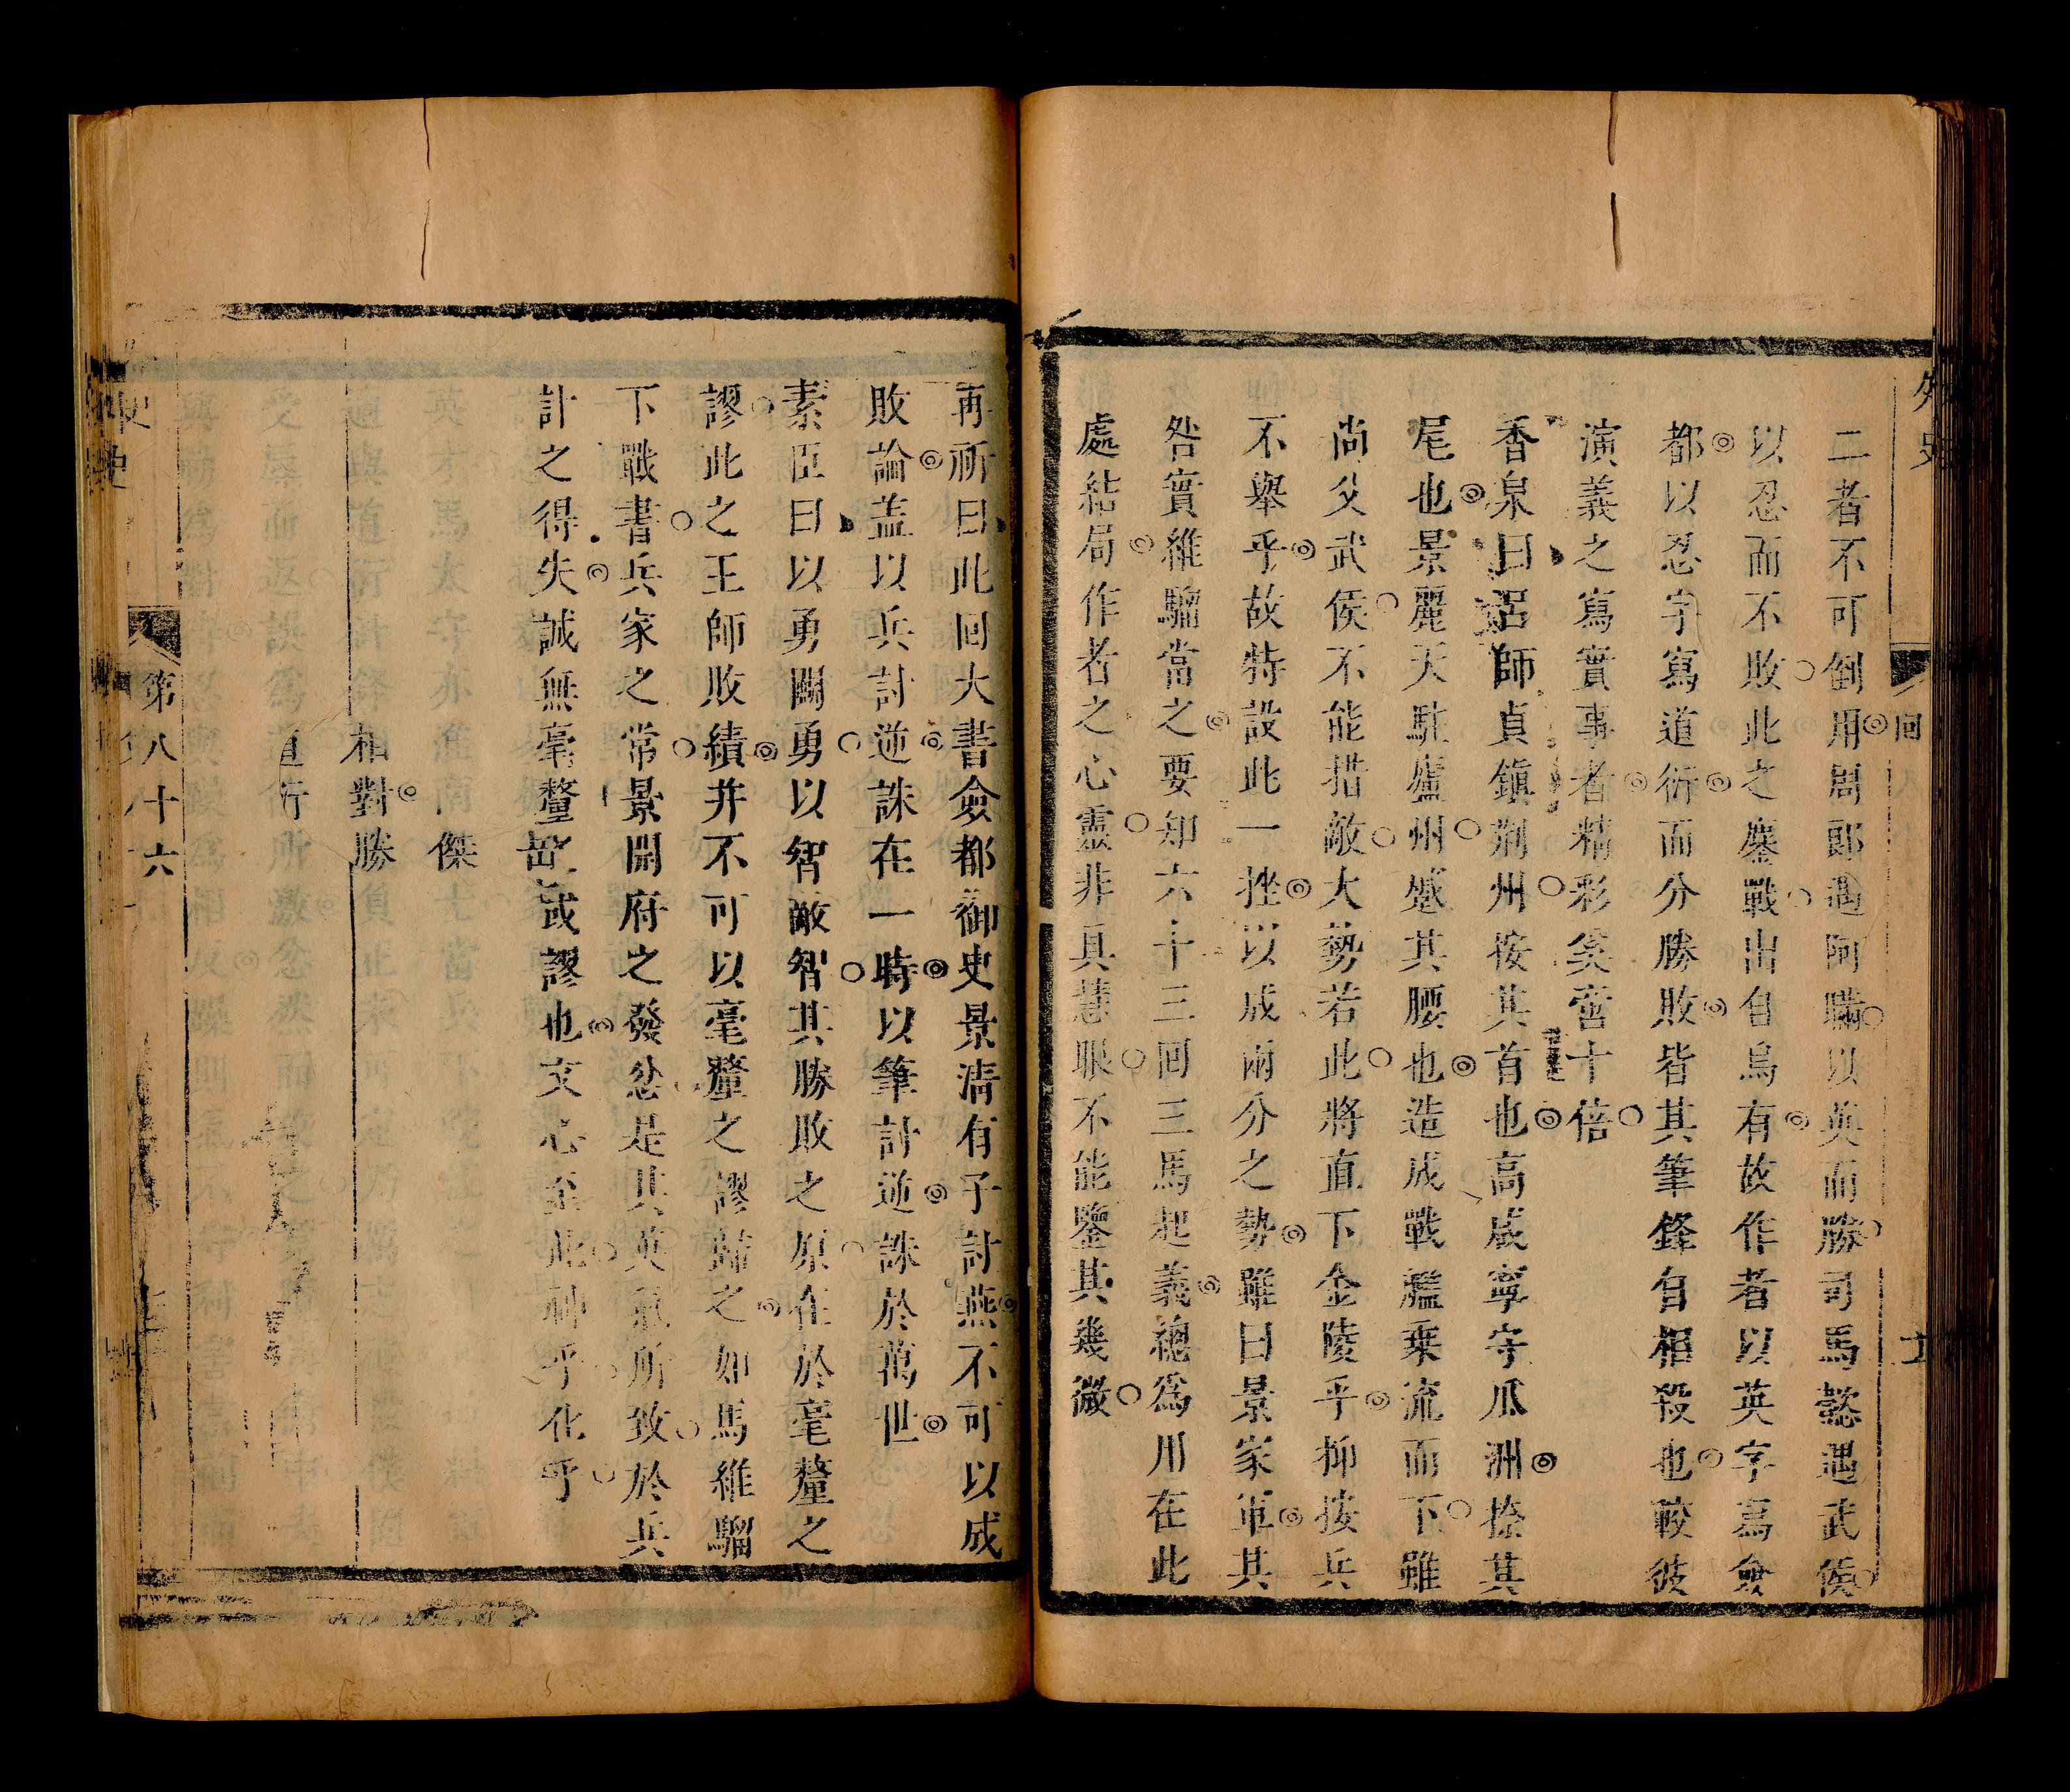 外史
回
二者不可倒用周郎遇阿瞞以英而勝司馬懿遇武侯
以忍而不敗此之鏖戰出自烏有故作者以英字爲僉
都以忍字寫道衍而分勝敗皆其筆鋒自相殺也較彼
演義之寫實事者精彩矣啻十倍
香泉曰呂師貞鎮荊州按其首也高咸寧守瓜洲捺其
尾也景麗天駐廬州蹙其腰也造成戰艦乗流而下雖
尚父武侯不能措敵大勢若此將直下金陵乎抑按兵
不舉乎故特設此一挫以成兩分之勢雖曰景家軍其
咎實維騮當之要知六十三回三馬起義總爲用在此
處結局作者之心靈非具慧眼不能鑒其幾微
再祈曰此回大書僉都御史景清有子討燕不可以成
敗論盖以兵討逆誅在一時以筆討逆誅於萬世
素臣曰以勇鬭勇以智敵智其勝敗之原在於毫釐之
謬此之王師敗績并不可以毫釐之謬歸之如馬維騮
下戰書兵家之常景開府之發忿是其英氣所致於兵
計之得失誠無毫釐或謬也文心至此神乎化乎
傑
相對勝
第八十六